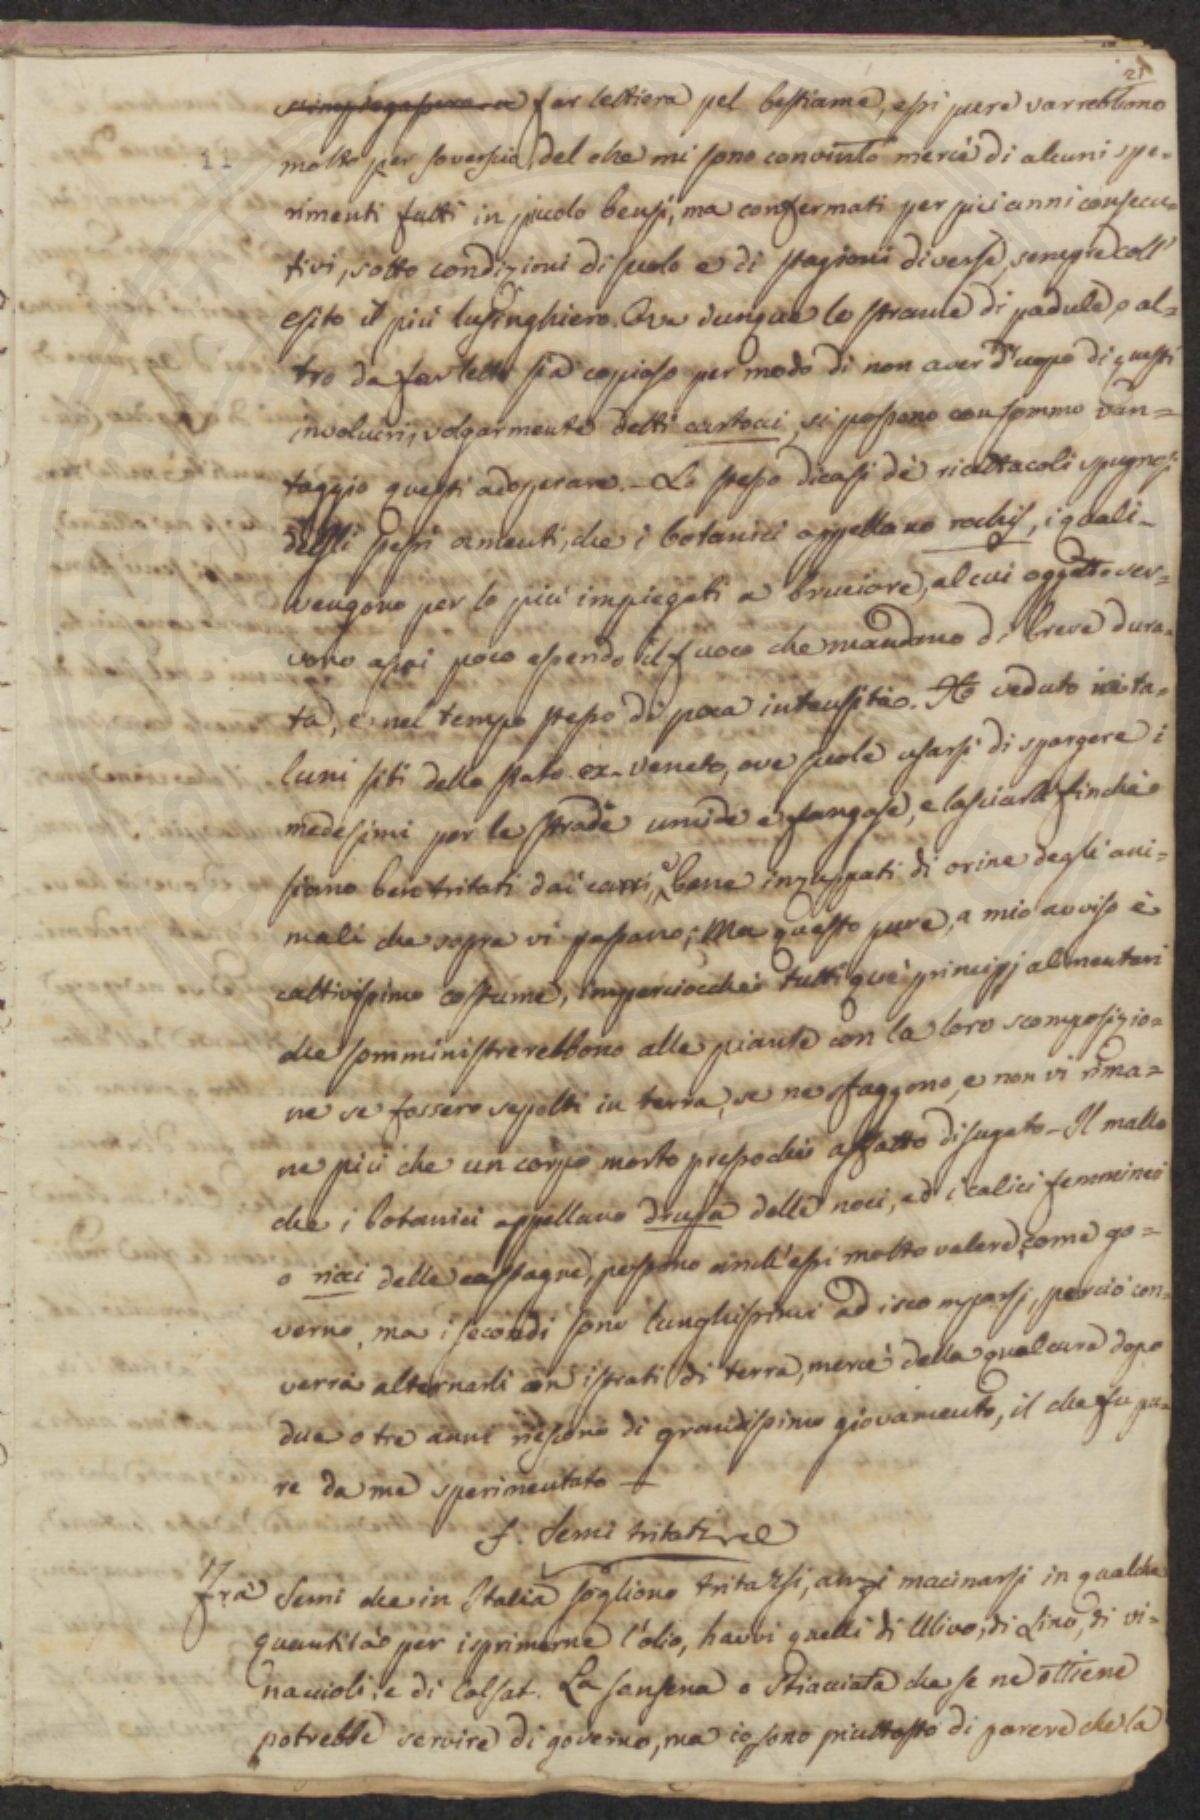 21
s'impiegassero a far lettiera pel bestiame, essi pure varrebbono
11
molto per soverscio, del che mi sono convinto mercè di alcuni spe-
rimenti fatti in picolo bensì, ma confermati per più anni consecu-
tivi, sotto condizioni di suolo e di stagioni diverse, sempre coll'
esito il più lusinghiero. Ove dunque lo strame di padule, o al-
tro da far letto sia copioso per modo di non aver d'uopo di questi
involucri, volgarmente detti cartocci, si possono con sommo van-
taggio questi adoperare. - Lo stesso dicasi de' ricettacoli spugnosi
degli stessi amenti, che i botanici appellano rachis, i quali
vengono per lo più impiegati a bruciare, al cui oggetto ser-
vono assai poco essendo il fuoco che mandano di breve dura-
ta, e nel tempo stesso di poca intensità. Ho veduto in ta-
luni siti dello stato ex-veneto, ove suole usarsi di spargere i
medesimi per le strade umide e fangose, e lasciarli finchè
siano ben tritati dai carri, e bene inzuppati di orine degli ani-
mali che sopra vi passano; Ma questo pure, a mio avviso è
cattivissimo costume, imperciocchè tutti que' principj alimentari
che somministrerebbono alle piante con la loro scomposizio-
ne se fossero sepolti in terra, se ne sfuggono, e non vi rima-
ne più che un corpo morto pressochè affatto disugato - Il mallo
che i botanici appellano drupa delle noci, ed i calici femminei
o ricci delle castagne, possono anch'essi molto valere come go-
verno, ma i secondi sono lunghissimi ad iscomporsi, perciò con-
verrà alternarli con istrati di terra, mercè della qual cura dopo
due o tre anni riescono di grandissimo giovamento, il che fu pu-
re da me sperimentato -
f. Semi tritati
17
Frà Semi che in Italia sogliono tritarsi, anzi macinarsi in qualche
quantità per isprimerne l'olio, havvi quelli di Ulivo, di Lino, di vi-
naccioli, e di Colsat. La sansena o Stiacciata che se ne ottiene
potrebbe servire di governo, ma io sono piuttosto di parere che la